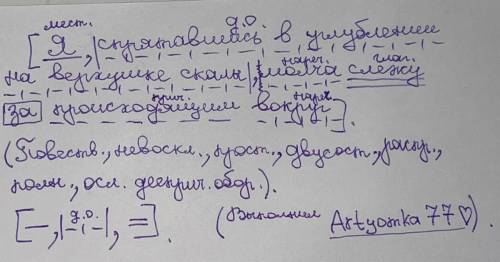 мест. д.о.
[Я, |спрятавшись в углублении
нареч. глаг.
на верхушке скалы|, молча слежу
прич. нареч.
за происходящим вокруг].
(Повеств., невоскл., прост., двусост., распр.,
полн., осл. дееприч. обор.).
д.о.
[—, |–·–·|, =]. (Выполнил Artyomka77♡).